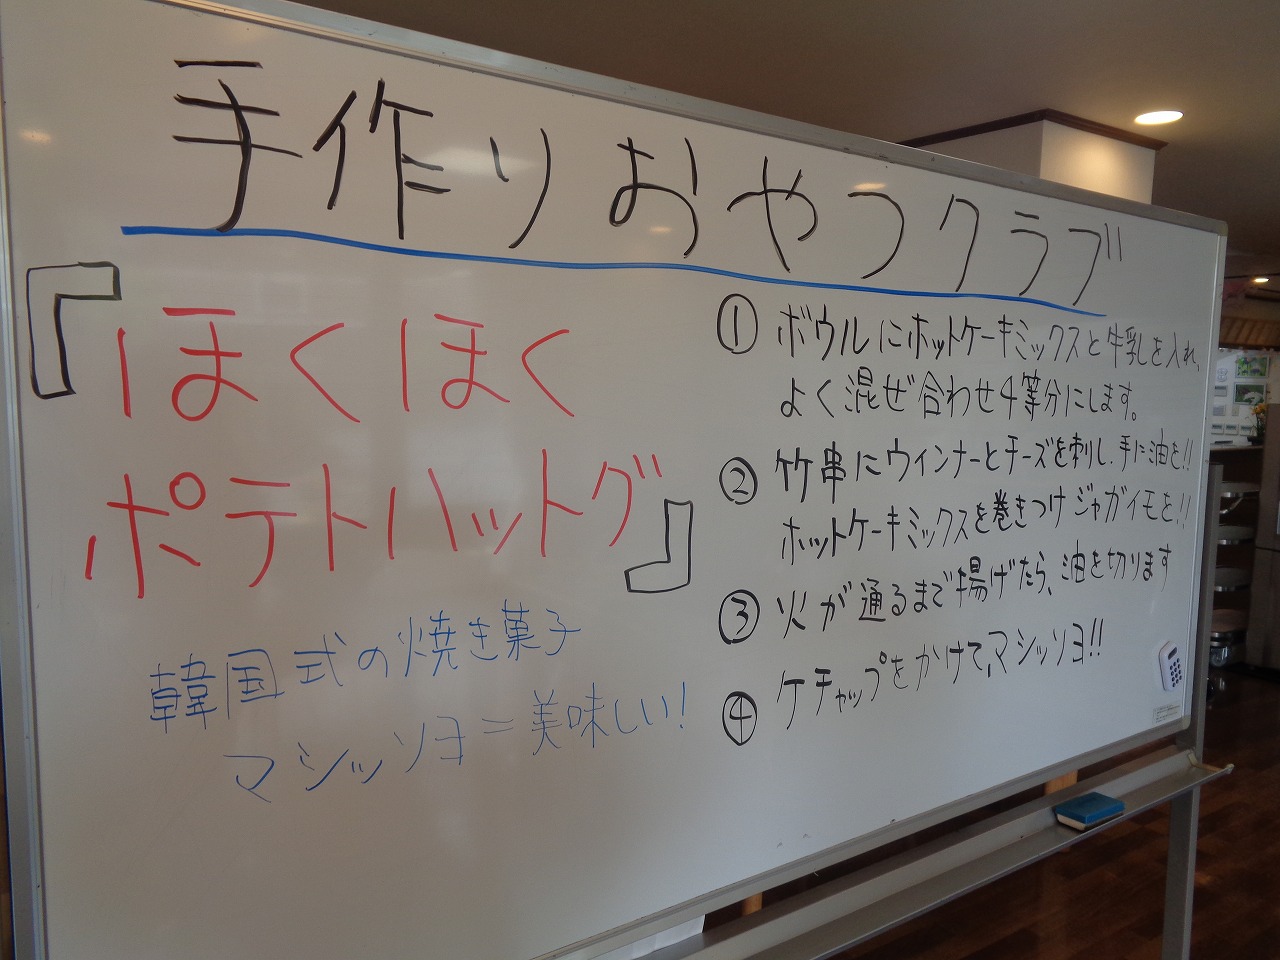 手作りおやつクラブ
『ほくほく
ポテトハットグ』
韓国式の焼き菓子
マシッソヨ=美味しい!
① ボウルにホットケーキミックスと牛乳を入れ、
よく混ぜ合わせ4等分にします。
② 竹串にウィンナーとチーズを刺し、手に油を!!
ホットケーキミックスを巻きつけジャガイモを!!
③ 火が通るまで揚げたら、油を切ります
④ ケチャップをかけて、マシッソヨ!!